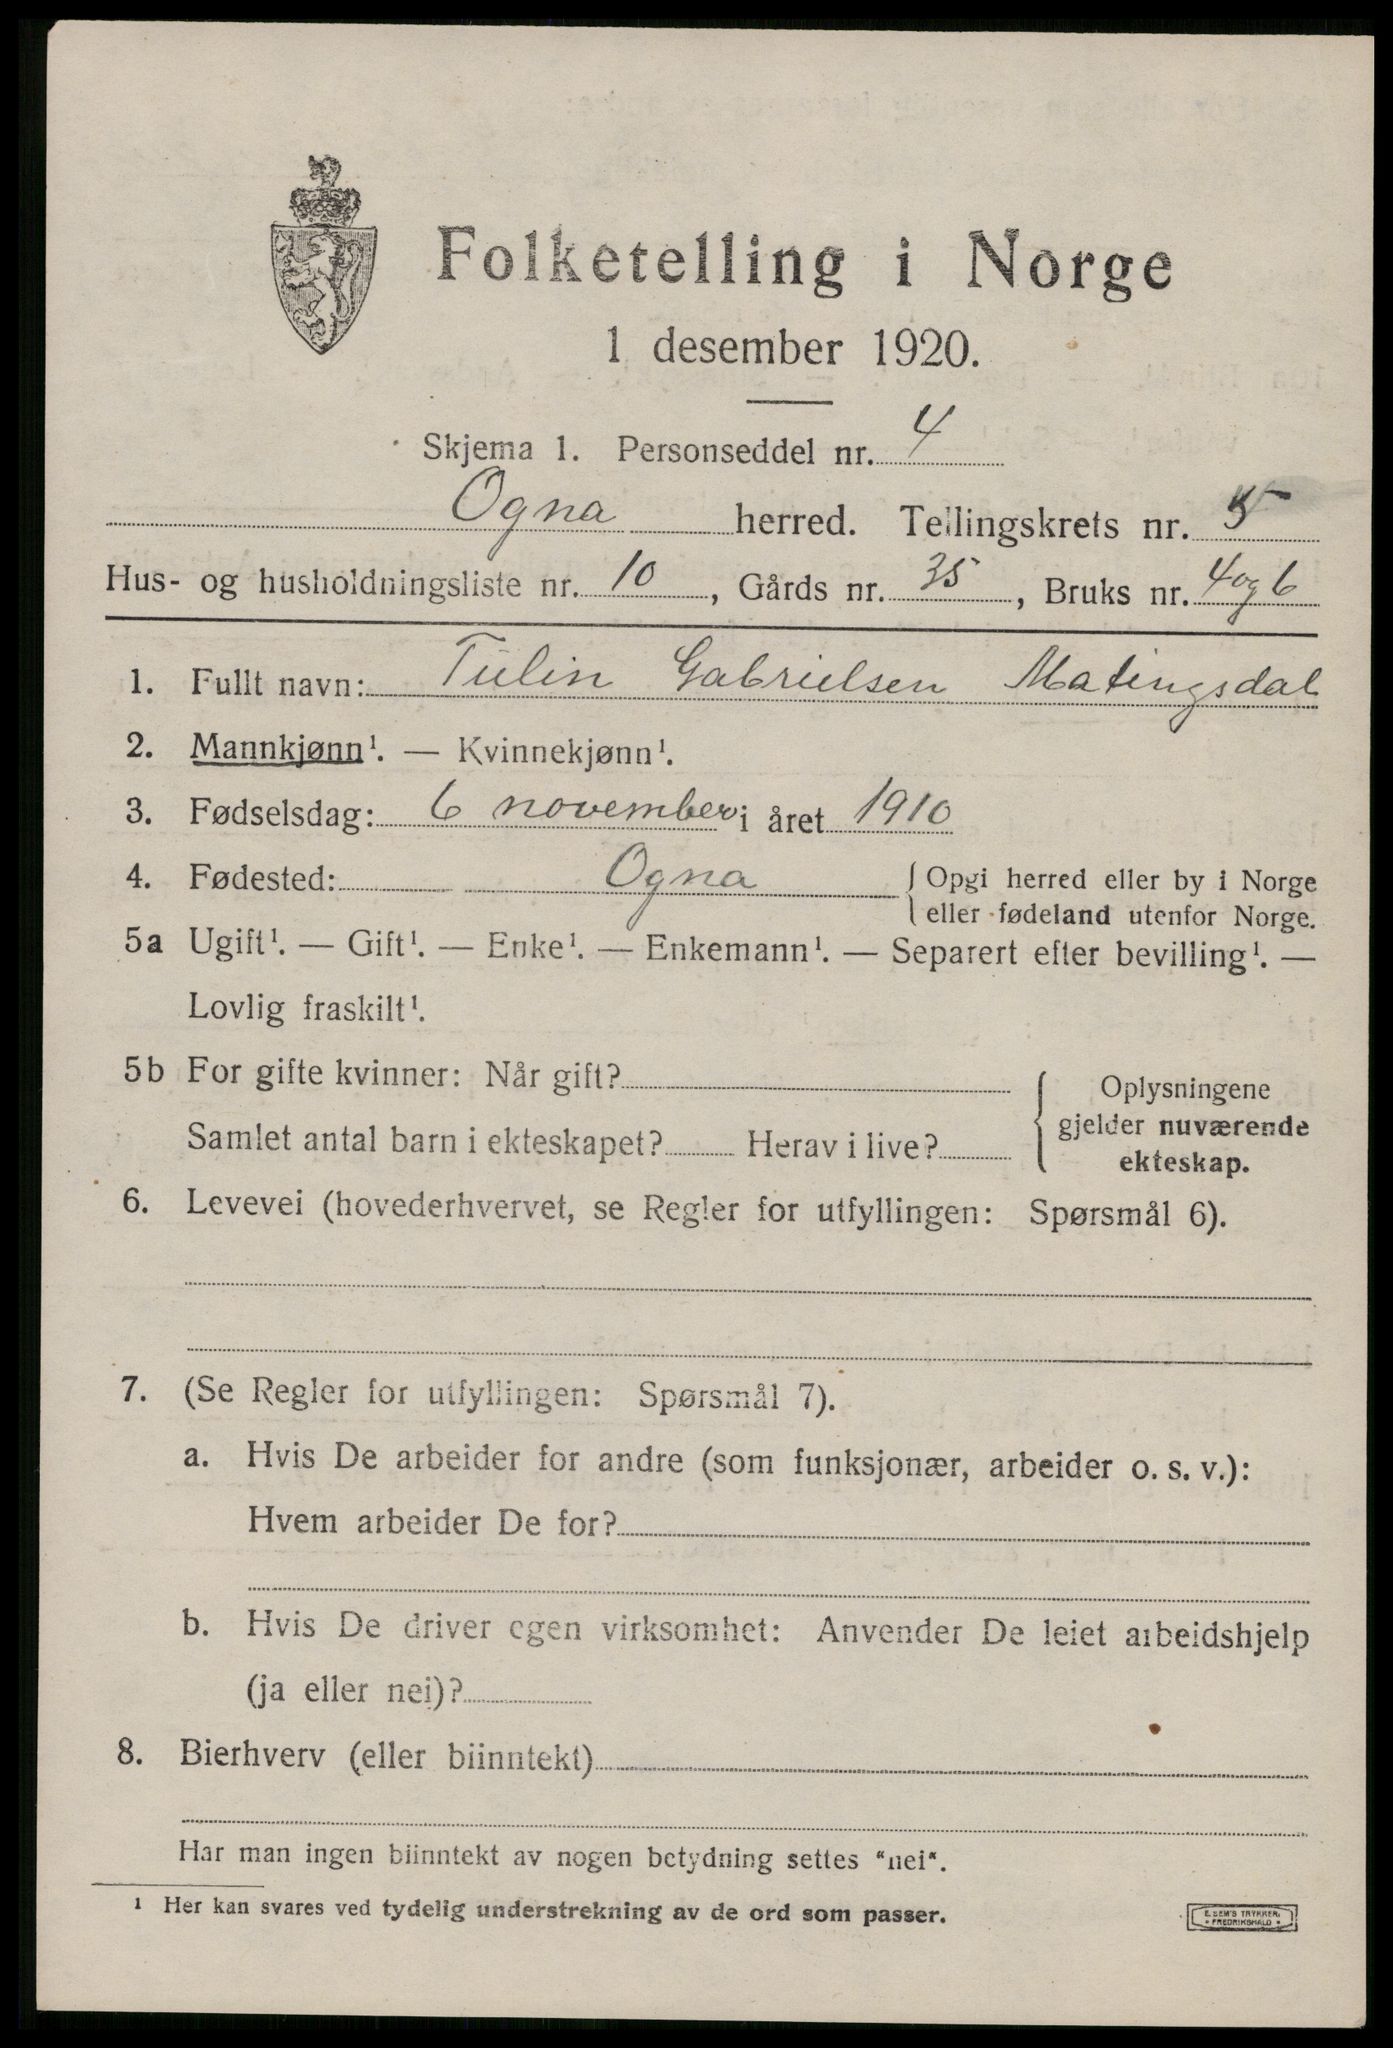 Folketelling i Norge
1 desember 1920.
Skjema 1. Personseddel nr. 4
Ogna herred. Tellingskrets nr. 5
Hus- og husholdningsliste nr. 10, Gårds nr. 35, Bruks nr. 4 og 6
1. Fullt navn: Tulin Gabrielsen Matingsdal
2. Mannkjønn¹. — Kvinnekjønn¹.
3. Fødselsdag: 6 november i året 1910
4. Fødested: Ogna { Opgi herred eller by i Norge
eller fødeland utenfor Norge.
5a Ugift¹. — Gift¹. — Enke¹. — Enkemann¹. — Separert efter bevilling¹. —
Lovlig fraskilt¹.
5b For gifte kvinner: Når gift?
Samlet antal barn i ekteskapet? Herav i live?
Oplysningene
gjelder nuværende
ekteskap.
6. Levevei (hovederhvervet, se Regler for utfyllingen: Spørsmål 6).
7. (Se Regler for utfyllingen: Spørsmål 7).
a. Hvis De arbeider for andre (som funksjonær, arbeider o. s. v.):
Hvem arbeider De for?
b. Hvis De driver egen virksomhet: Anvender De leiet arbeidshjelp
(ja eller nei)?
8. Bierhverv (eller biinntekt)
Har man ingen biinntekt av nogen betydning settes "nei".
¹ Her kan svares ved tydelig understrekning av de ord som passer.
E. SEM'S TRYKKERI.
FREDRIKSHALD